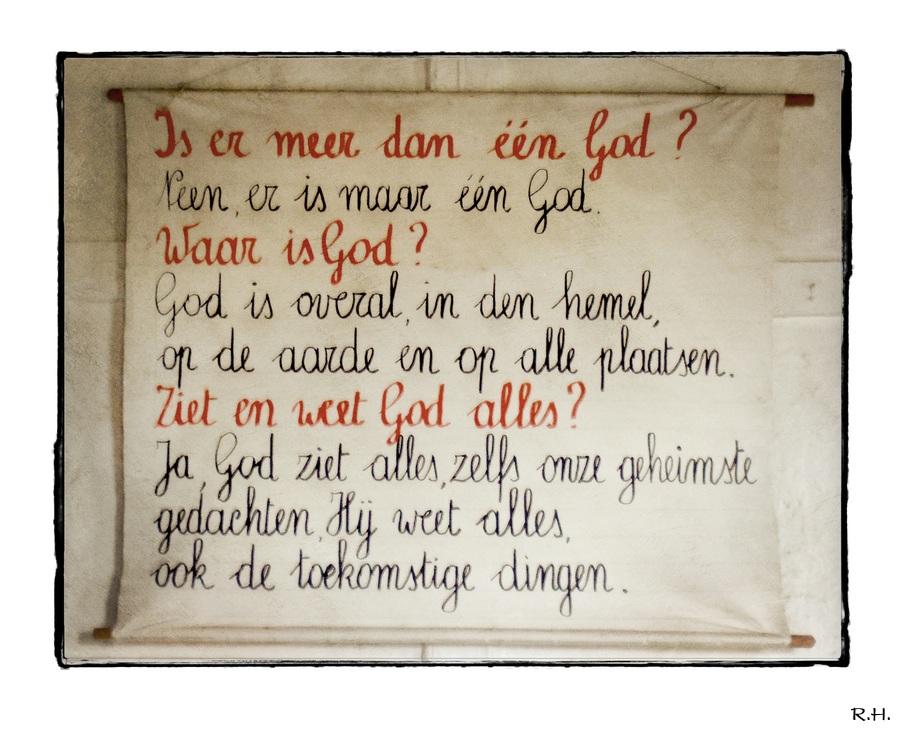 Is er meer dan één God ?
Neen, er is maar één God.
Waar is God ?
God is overal, in den hemel,
op de aarde en op alle plaatsen.
Ziet en weet God alles ?
Ja, God ziet alles, zelfs onze geheimste
gedachten, Hij weet alles,
ook de toekomstige dingen.
R.H.